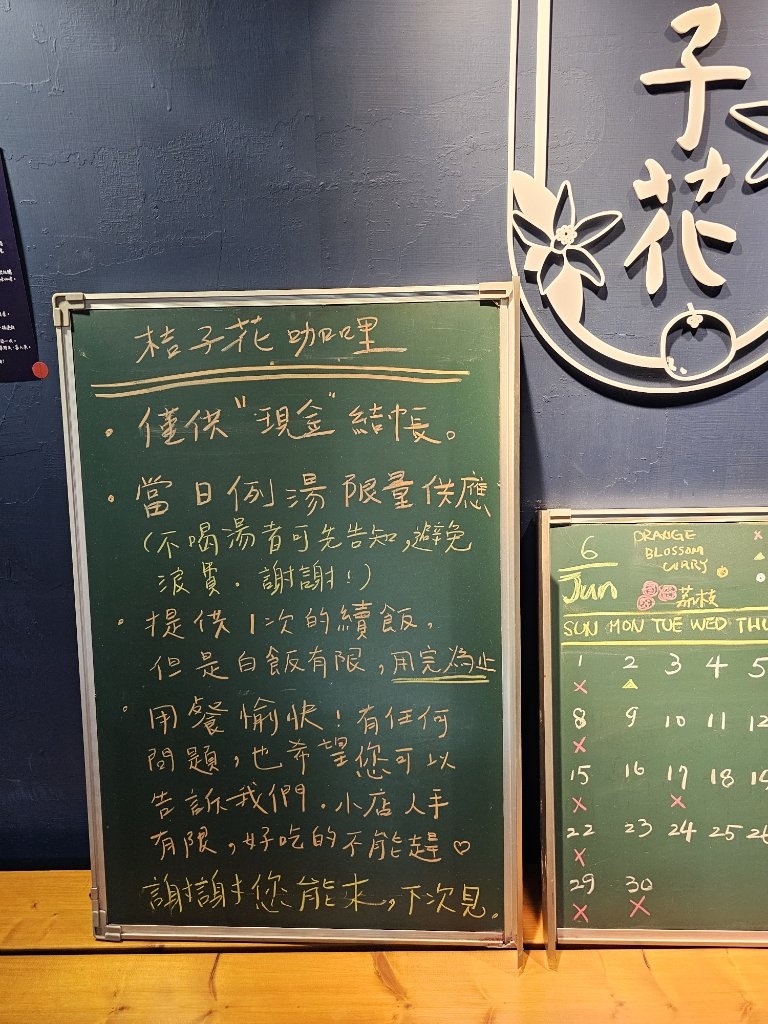 子花
桔子花咖哩
・僅供"現金"結帳。
・當日例湯限量供應
(不喝湯者可先告知,避免
浪費.謝謝!)
・提供1次的續飯,
但是白飯有限,用完為止
・用餐愉快!有任何
問題,也希望您可以
告訴我們.小店人手
有限,好吃的不能趕♡
謝謝您能來,下次見。
6
Jun
ORANGE
BLOSSOM
CURRY
荔枝
SUN MON TUE WED THU
1 2 3 4 5
8 9 10 11 12
15 16 17 18 19
22 23 24 25 26
29 30